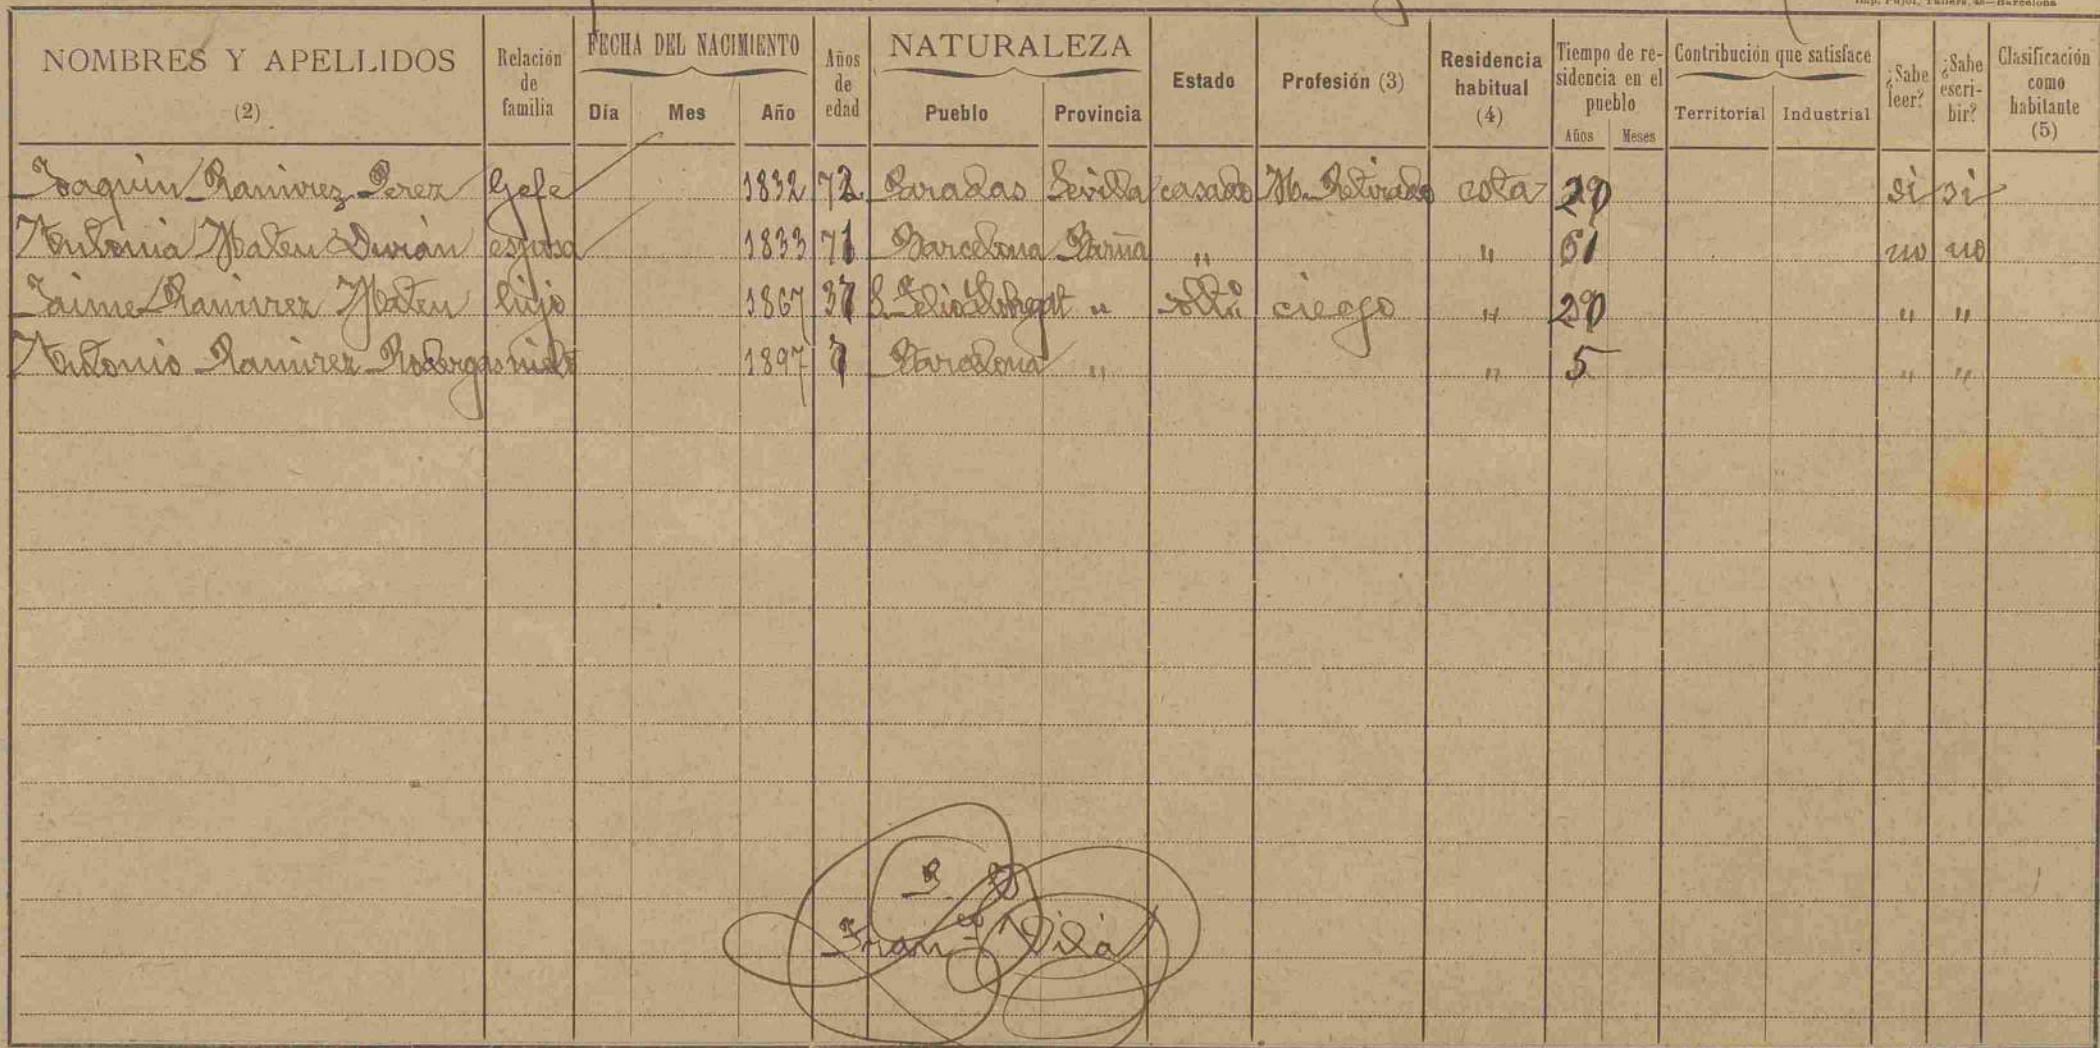 Imp. Pujol, Tallers, 45—Barcelona
NOMBRES Y APELLIDOS
(2)
Relación
de
familia
FECHA DEL NACIMIENTO
Día Mes Año
Años
de
edad
NATURALEZA
Pueblo Provincia
Estado
Profesión (3)
Residencia
habitual
(4)
Tiempo de re-
sidencia en el
pueblo
Años Meses
Contribución que satisface
Territorial Industrial
¿Sabe
leer?
¿Sabe
escri-
bir?
Clasificación
como
habitante
(5)
Joaquin Ramirez Perez Gefe 1832 72 Paradas Sevilla casado M. Retirado esta 29 si si
Antonia Mateu Durán esposa 1833 71 Barcelona Barña " " 61 no no
Jaime Ramirez Mateu hijo 1867 37 S. Feliu Llobregat " soltº ciego " 29 " "
Antonio Ramirez Rodergas nieto 1897 7 Barcelona " " 5 " "
Franco Vilá